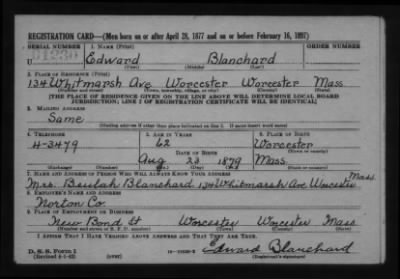 REGISTRATION CARD—(Men born on or after April 28, 1877 and on or before February 16, 1897)
SERIAL NUMBER 1. NAME (Print) ORDER NUMBER
U Edward Blanchard
(First) (Middle) (Last)
2. PLACE OF RESIDENCE (Print)
134 Whitmarsh Ave Worcester Worcester Mass
(Number and street) (Town, township, village, or city) (County) (State)
[THE PLACE OF RESIDENCE GIVEN ON THE LINE ABOVE WILL DETERMINE LOCAL BOARD
JURISDICTION; LINE 2 OF REGISTRATION CERTIFICATE WILL BE IDENTICAL]
3. MAILING ADDRESS
Same
[Mailing address if other than place indicated on line 2. If same insert word same]
4. TELEPHONE 5. AGE IN YEARS 6. PLACE OF BIRTH
4-3479 62 Worcester
DATE OF BIRTH
Aug 23 1879 Mass.
7. NAME AND ADDRESS OF PERSON WHO WILL ALWAYS KNOW YOUR ADDRESS
Mrs. Beulah Blanchard 134 Whitmarsh Ave Worcester Mass.
8. EMPLOYER'S NAME AND ADDRESS
Norton Co.
9. PLACE OF EMPLOYMENT OR BUSINESS
New Bond St Worcester Worcester Mass
(Number and street or R. F. D. number) (Town) (County) (State)
I AFFIRM THAT I HAVE VERIFIED ABOVE ANSWERS AND THAT THEY ARE TRUE.
D. S. S. Form 1
(Revised 4-1-42) (over) Edward Blanchard
(Registrant's signature)